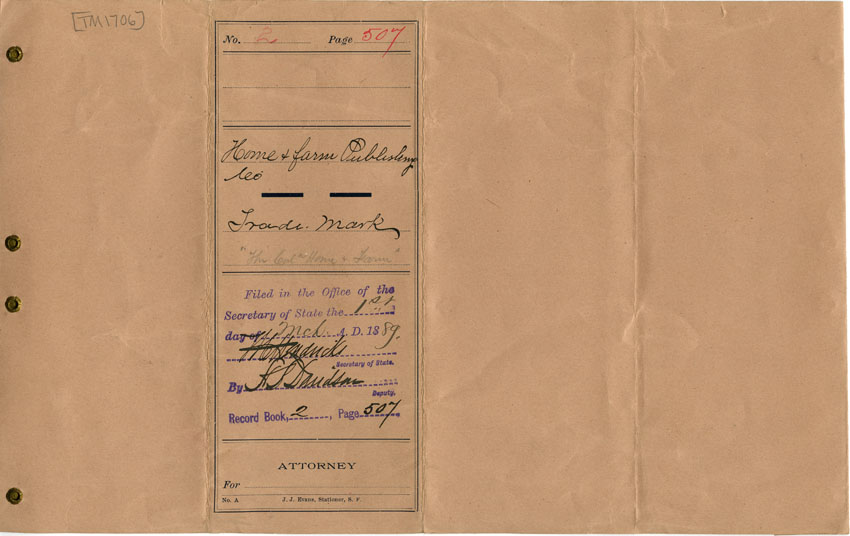 [TM1706]
No. 2 Page 507
Home & Farm Publishing
Co
Trade. Mark
"The Cal. Home & Farm"
Filed in the Office of the
Secretary of State the 1st
day of Mch A. D. 1889.
W C Hendricks
Secretary of State.
By Davidson
Deputy.
Record Book, 2, Page 507
ATTORNEY
For
No. A J. J. Evans, Stationer, S. F.